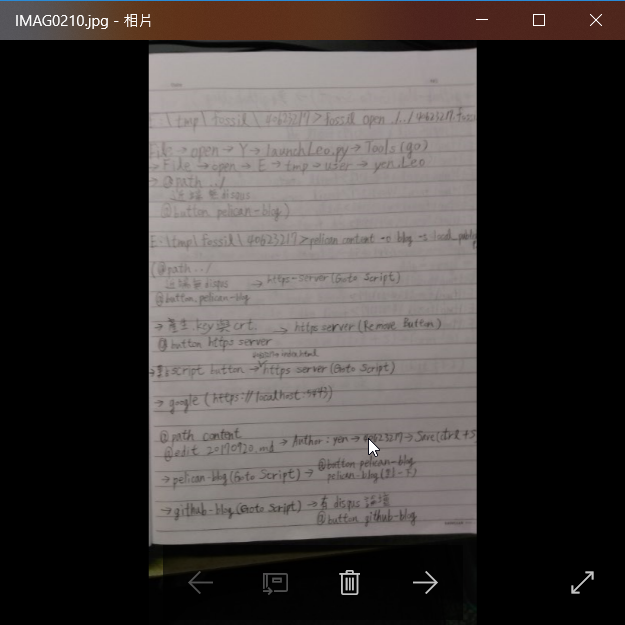 IMAG0210.jpg - 相片
E:\tmp\fossil\40623217>fossil open ./../40623217.foss
File → open → Y → launchLeo.py → Tools (go)
→ File → open → E → tmp → user → yen.leo
→ @path ../
@button pelican-blog)
E:\tmp\fossil\40623217>pelican content -o blog -s local_publi
(@path ../
→ https-server (Goto Script)
@button pelican-blog
→ 產生 key與crt → https server (Remove Button)
@button https server
index.html
script button → https server (Goto Script)
→ google (https://localhost:
@path content
@edit 20170920.md → Author: yen → 40623217 → Save (ctrl + S
→ pelican-blog (Goto Script) → @button pelican-blog
pelican-blog
→ github-blog (Goto Script) → 有 disqus
@button github-blog